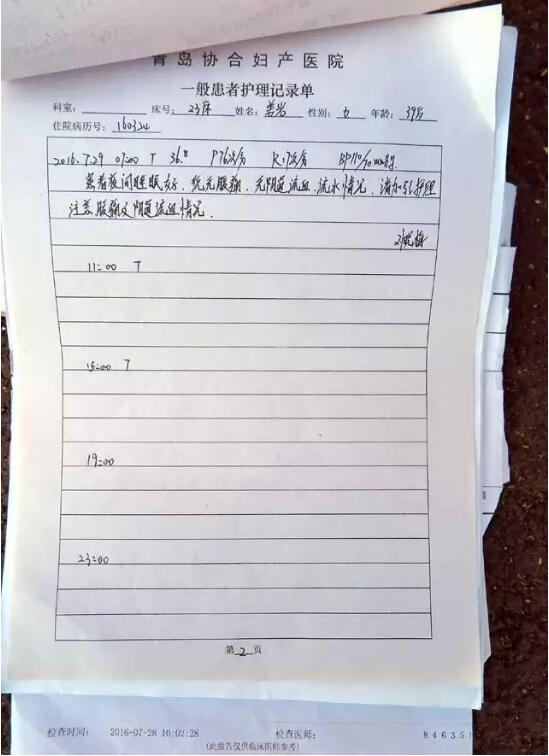 青岛协合妇产医院
一般患者护理记录单
科室： 床号：23床 姓名： 性别：女 年龄：39岁
住院病历号：160324
2016.7.29 07:00 T 36.8 P76次/分 R17次/分 BP110/70mmHg
患者夜间睡眠好，现无腹痛，无阴道流血、流水情况，请加强护理
注意腹痛及阴道流血情况。
11:00 T
15:00 T
19:00
23:00
第2页
检查时间： 2016-07-28 10:02:28 检查医师： 84635
(此报告仅供临床医师参考)